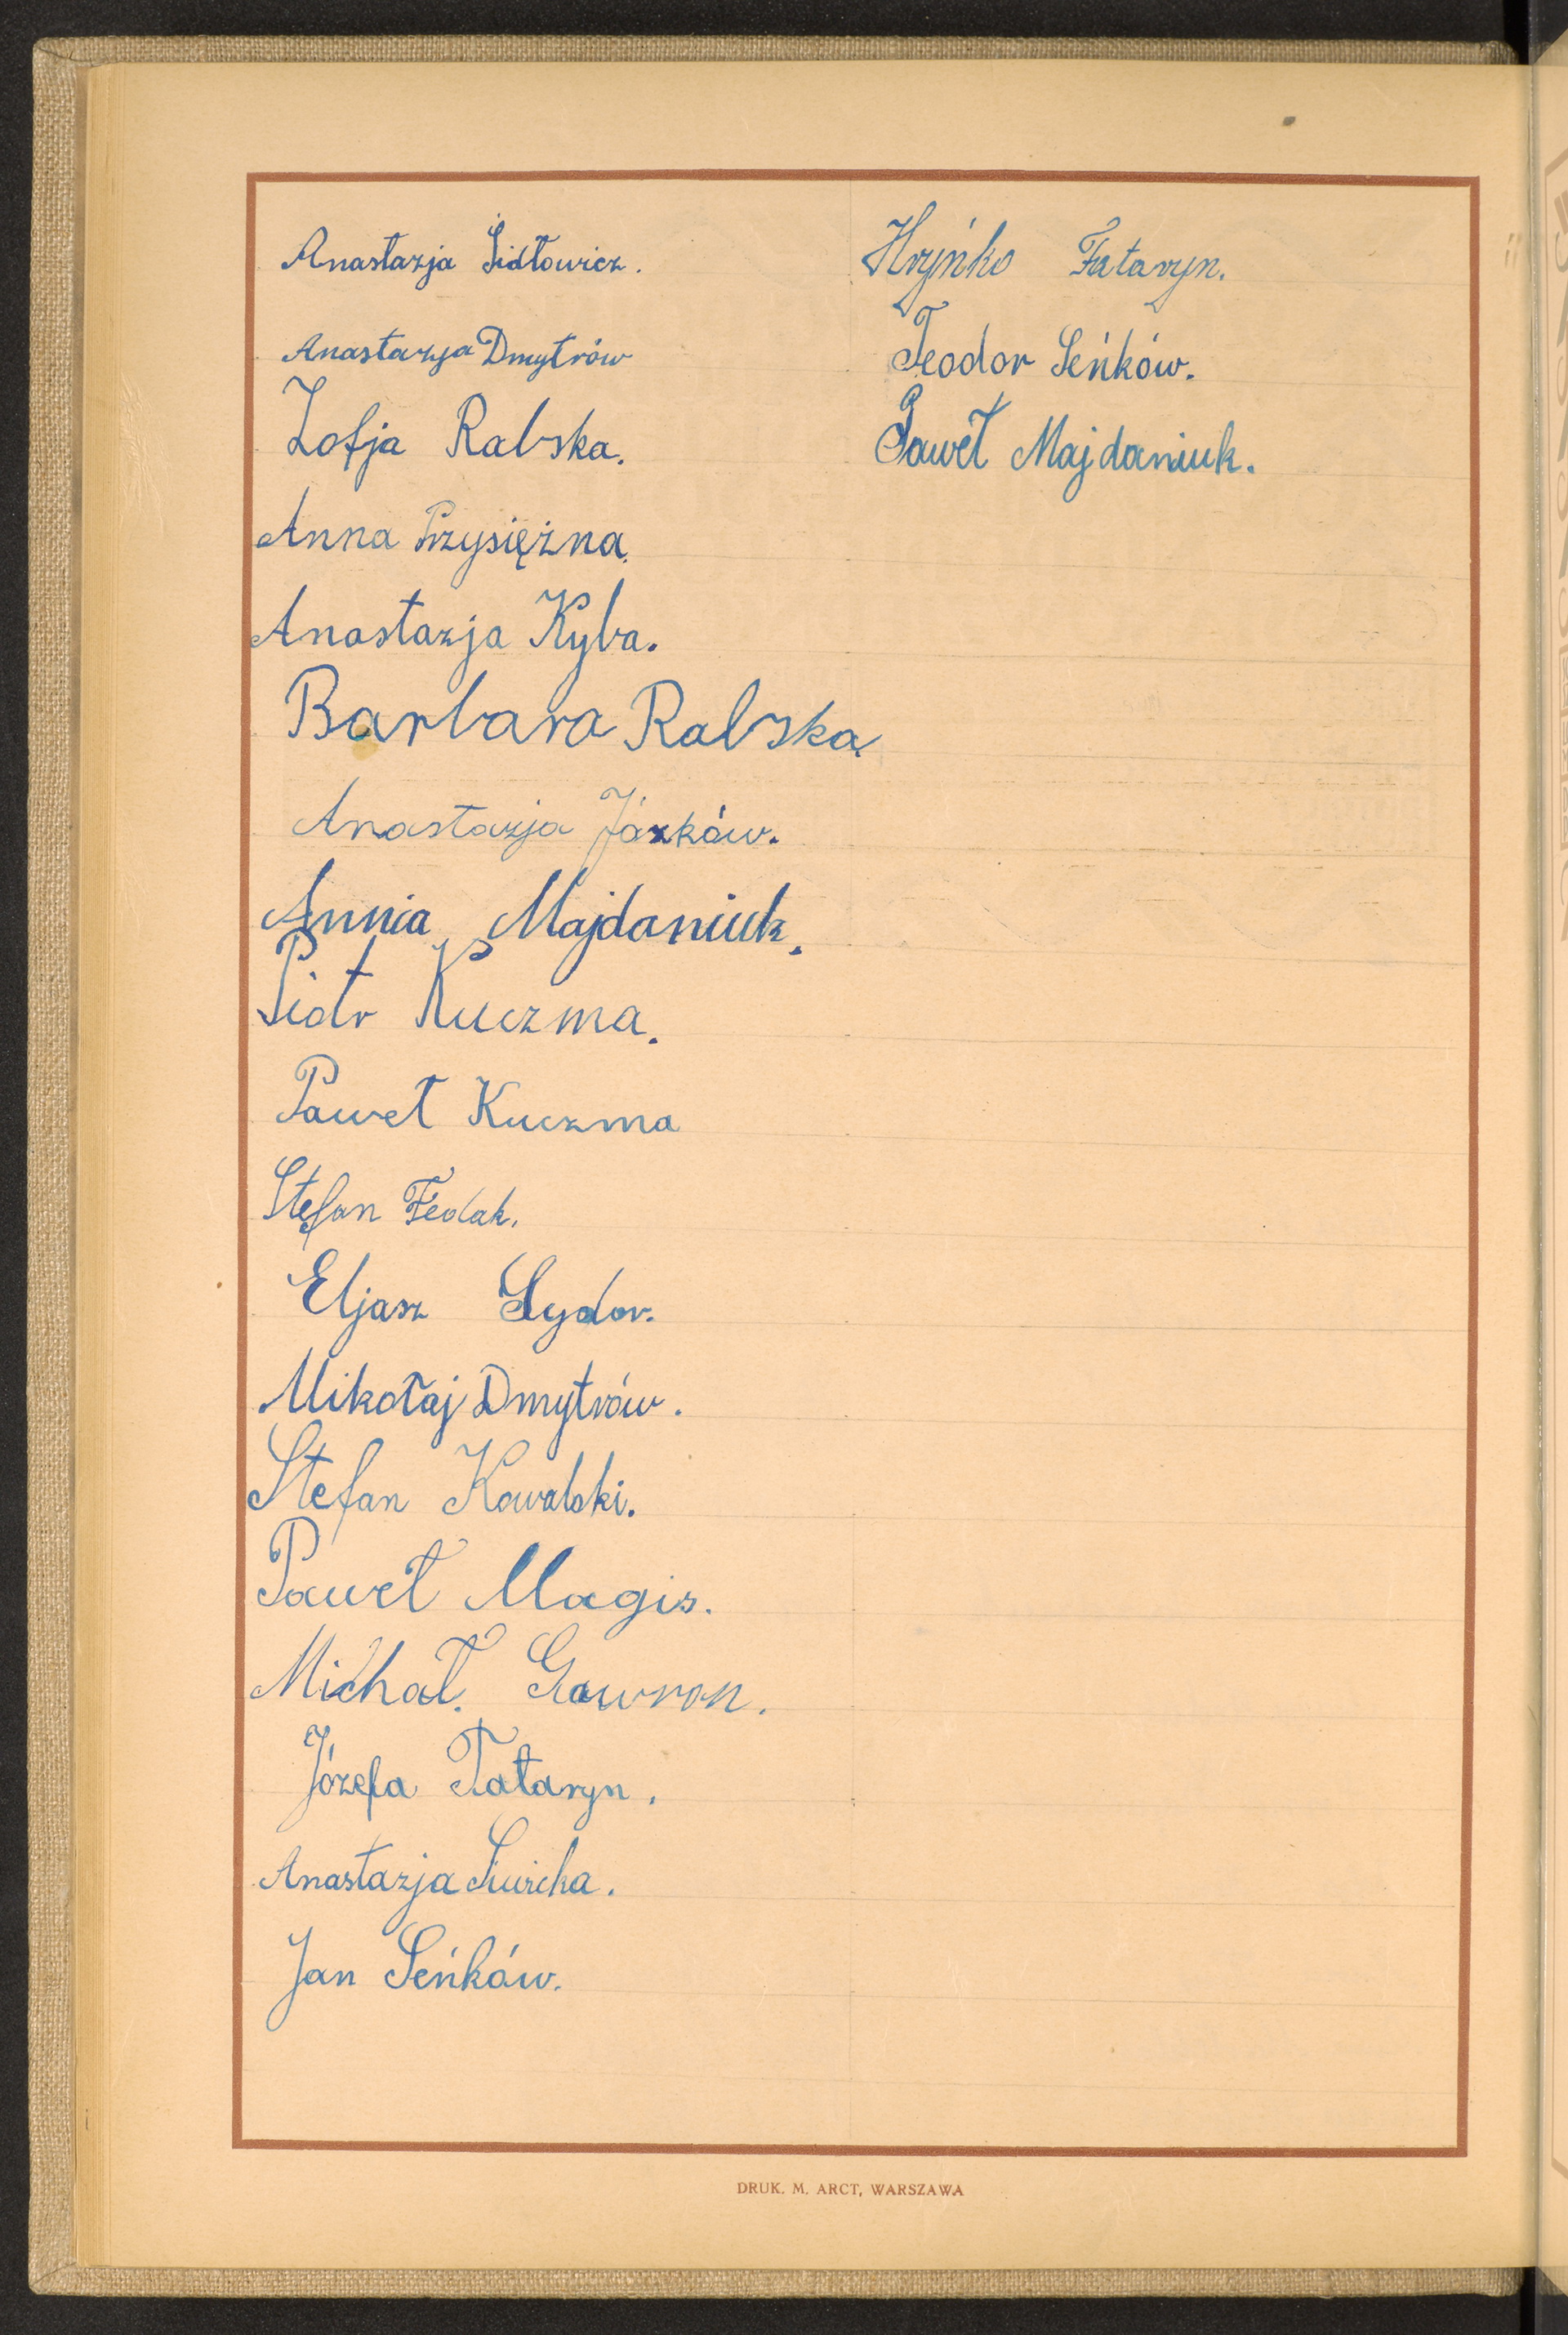 Anastazja Sidłowicz.
Anastazja Dmytrów
Zofja Rabska.
Anna Przysiężna.
Anastazja Kyba.
Barbara Rabska
Anastazja Józków.
Annia Majdaniuk.
Piotr Kuczma.
Paweł Kuczma
Stefan Fedak.
Eljasz Sydor.
Mikołaj Dmytrów.
Stefan Kowalski.
Paweł Magis.
Michał. Gawron.
Józefa Tataryn.
Anastazja
Jan Seńków.
Hryńko Tataryn.
Teodor Seńków.
Paweł Majdaniuk.
DRUK. M. ARCT, WARSZAWA